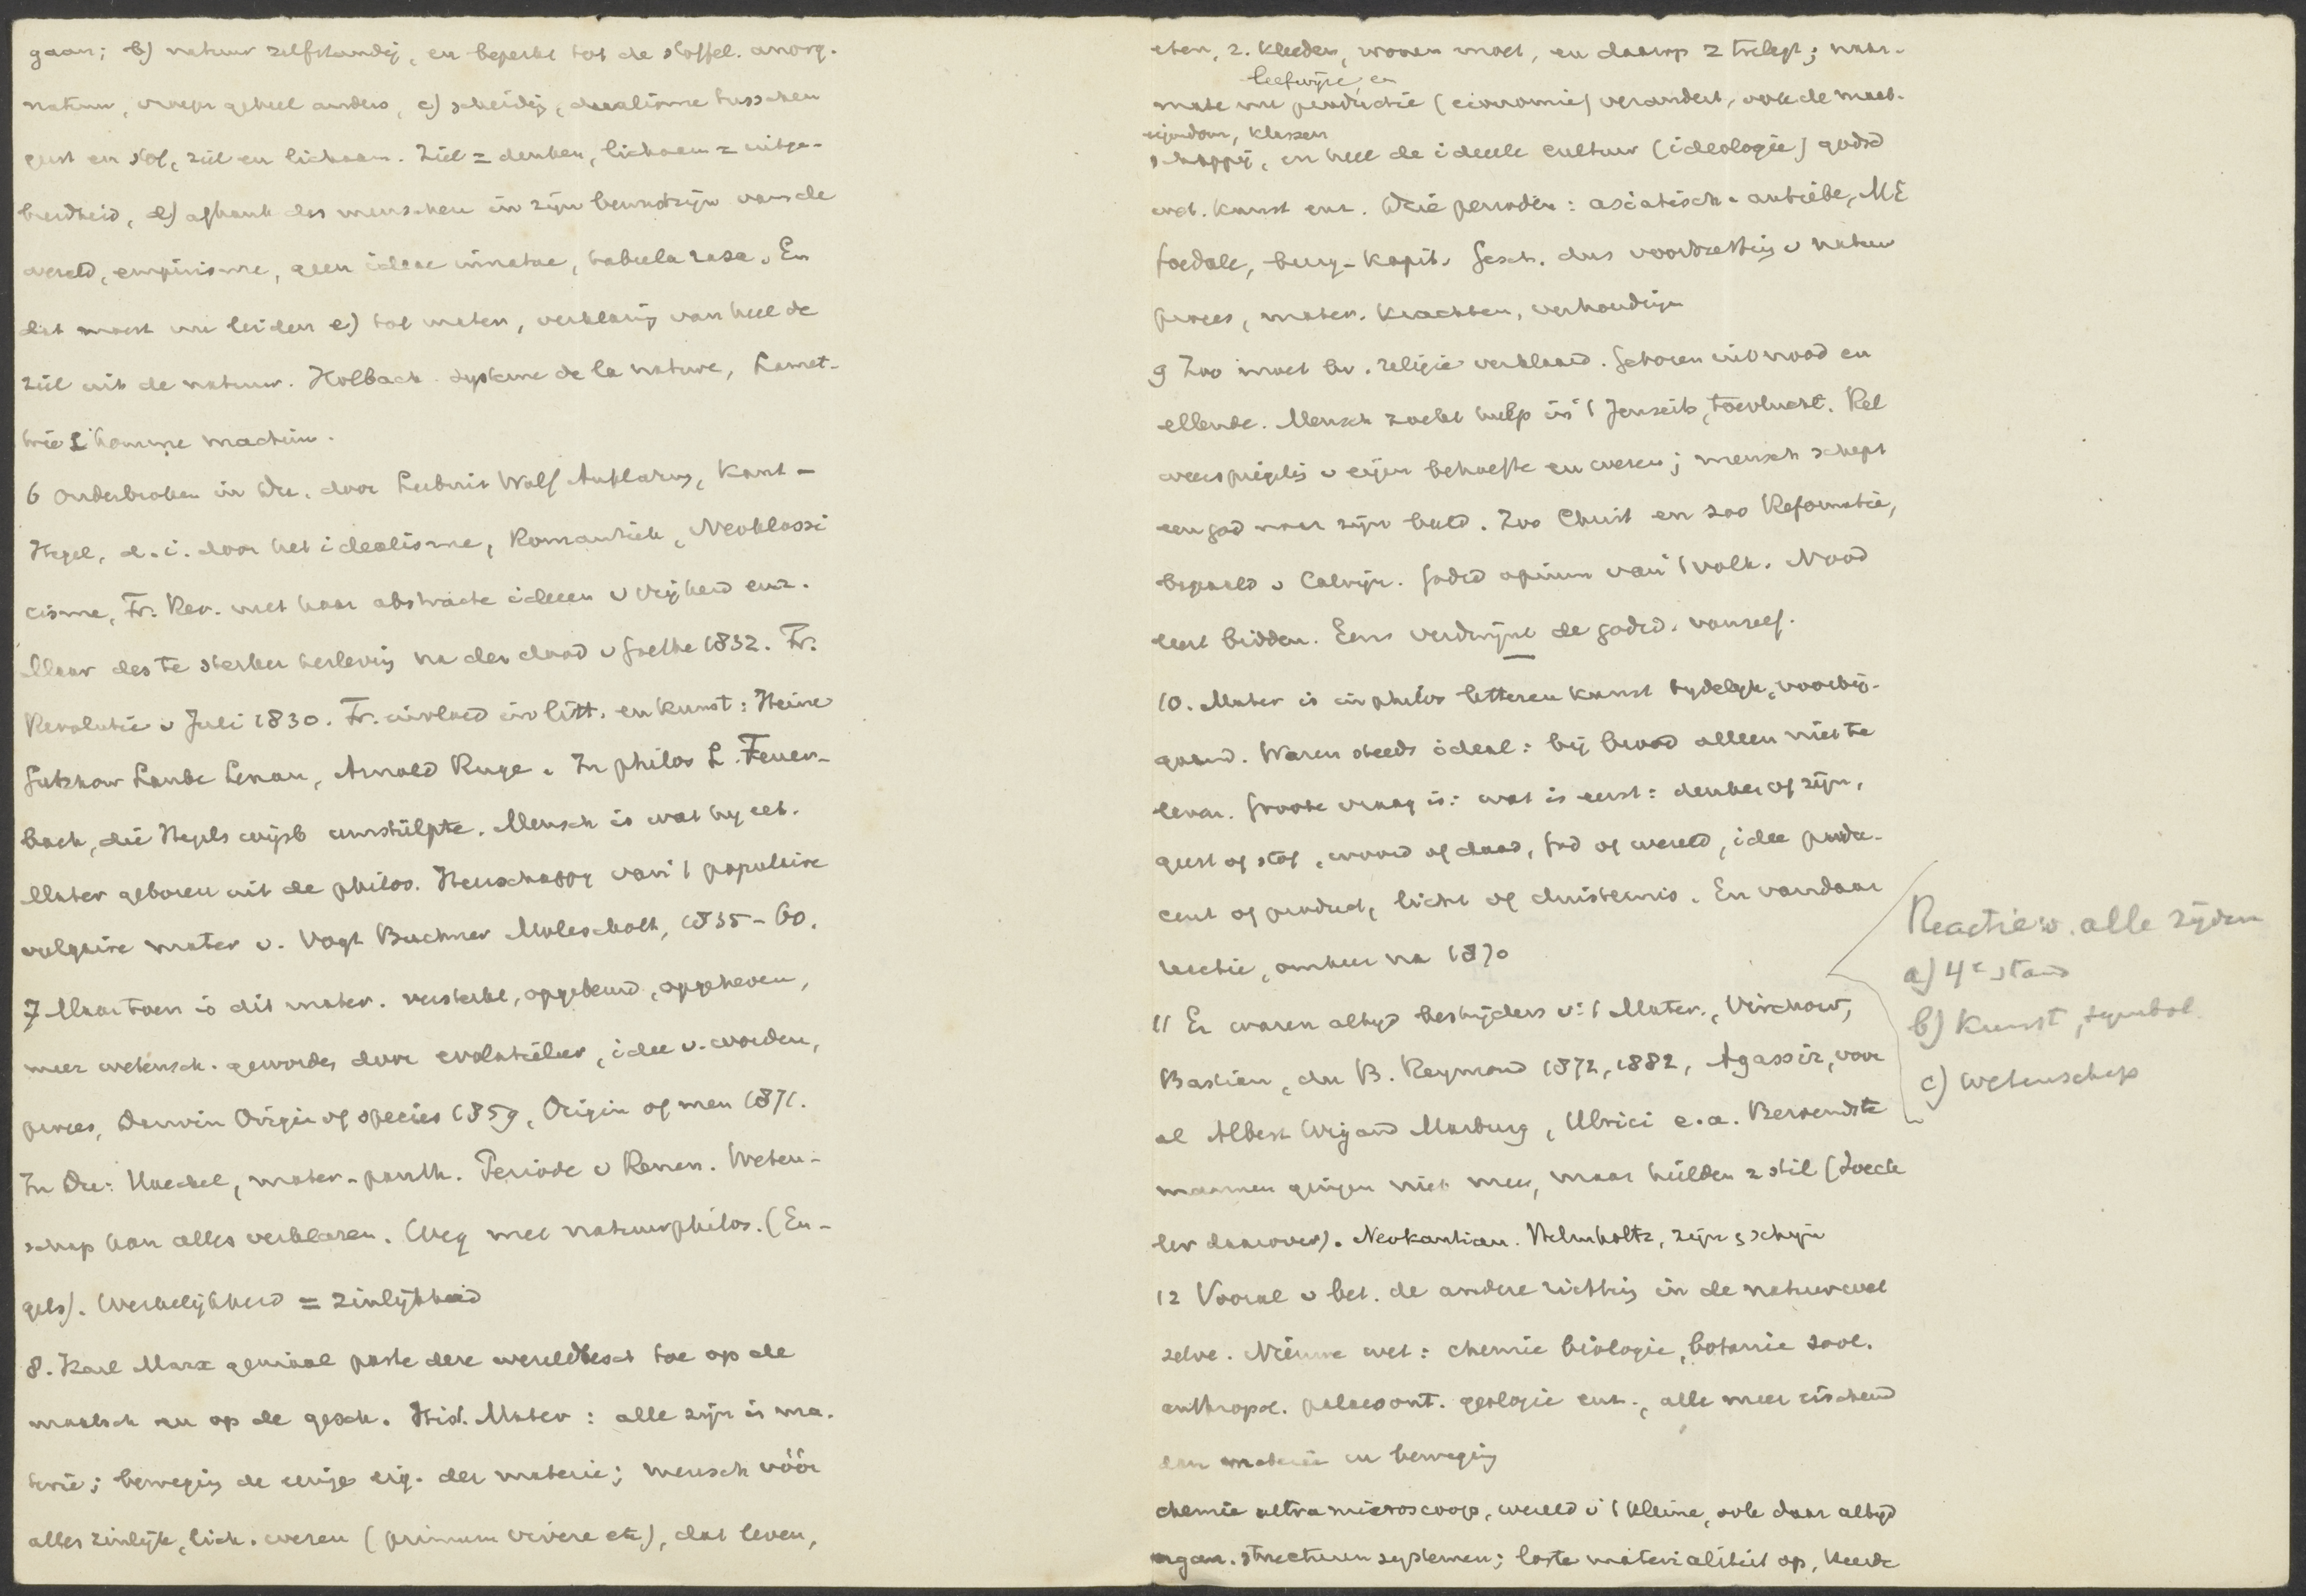 gaan; b) natuur zelfstandig, en beperkt tot de stoffel. anorg.
natuur, vroeger geheel anders, c) scheidg, dualisme tusschen
geest en stof, ziel en lichaam. Ziel = denken, lichaam = uitge-
breidheid, d) afhank des menschen in zijn bewustzijn van de
wereld, empirisme, geen ideae innatae, tabula rasa. En
dit moest nu leiden e) tot mater, verklaring van heel de
ziel uit de natuur. Holbach systeme de la nature, Lamet-
trie L'homme machine.
6 Onderbroken in Du. door Leibniz Wolf Aufklarung, Kant -
Hegel, d.i. door het idealisme, Romantiek, Neoklassi
cisme, Fr. Rev. met haar abstracte ideeen v vrijheid enz.
Maar des te sterker herleving na den dood v Goethe 1832. Fr.
Revolutie v Juli 1830. Fr. invloed in litt. en kunst: Heine
Gutzkow Laube Lenau, Arnold Ruge. In philos L. Feuer-
bach, die Hegels wijsb umstülpte. Mensch is wat hij eet.
Mater geboren uit de philos. Heerschappy van 't populaire
vulgaire mater v. Vogt Buchner Moleschott, 1835-60.
7 Maar toen is dit mater. versterkt, opgebeurd, opgeheven,
meer wetensch. geworden door evolutieleer, idee v. worden,
proces, Darwin Origin of species 1859, Origin of men 1871.
In Du: Haeckel, mater-panth. Periode v Renan. Weten-
schap kan alles verklaren. Weg met natuurphilos. (En-
gels). Werkelijkheid = zinlijkheid
8. Karl Marx geniaal paste deze wereldbesch toe op de
maatsch en op de gesch. Hist. Mater: alle zijn is ma-
terie; beweging de eenige eig. der materie; mensch vóór
alles zinlijk, lich. wezen (primum vivere etc), dat leven,
eten, z. kleeden, wonen moet, en daarop z toelegt; naar-
leefwijze, en
mate nu productie (economie) verandert, ook de maat-
eigendom, klassen
schappij, en heel de ideele cultuur (ideologie) godsd
wet. kunst enz. Drie perioden: asiatisch-antieke, ME
foedale, burg-kapit. Gesch. dus voortzetting v natuur
proces, mater. krachten, verhoudingen
9 Zoo moet bv. religie verklaard. Geboren uit nood en
ellende. Mensch zoekt hulp in 't Jenseits, toevlucht. Rel
weerspiegeling v eigen behoefte en wezen; mensch schept
een god naar zijn beeld. Zoo Christ en zoo Reformatie,
bepaald v Calvijn. Godsd opium van 't volk. Nood
leert bidden. Eens verdwijnt de godsd. vanzelf.
10. Mater is in philos letteren kunst tydelyk, voorbij-
gaand. Waren steeds ideal: bij brood alleen niet te
leven. Groote vraag is: wat is eerst: denken of zijn,
geest of stof, woord of daad, God of wereld, idee produ-
cent of product, licht of duisternis. En vandaar
reactie, omkeer na 1870
Reactie v. alle zijden
a) 4e stand
b) kunst, symbol
c) wetenschap
11 Er waren altijd bestrijders v 't Mater., Virchow,
Bastian, du B. Reymond 1872, 1882, Agassiz, voor
al Albert Wigand Marburg, Ulrici e.a. Beroemdste
mannen gingen niet mee, maar hielden z stil (Zoeck
ler daarover). Neokantian. Helmholtz, zijn & schijn
12 Vooral v bet. de andere richting in de natuurwet
zelve. Nieuwe wet: chemie biologie, botanie zool.
anthropol. palaeont. geologie enz., alle meer eischend
dan materie en beweging
chemie ultramicroscoop, wereld v 't kleine, ook daar altijd
organ. structuren systemen; loste materialiteit op, keerde